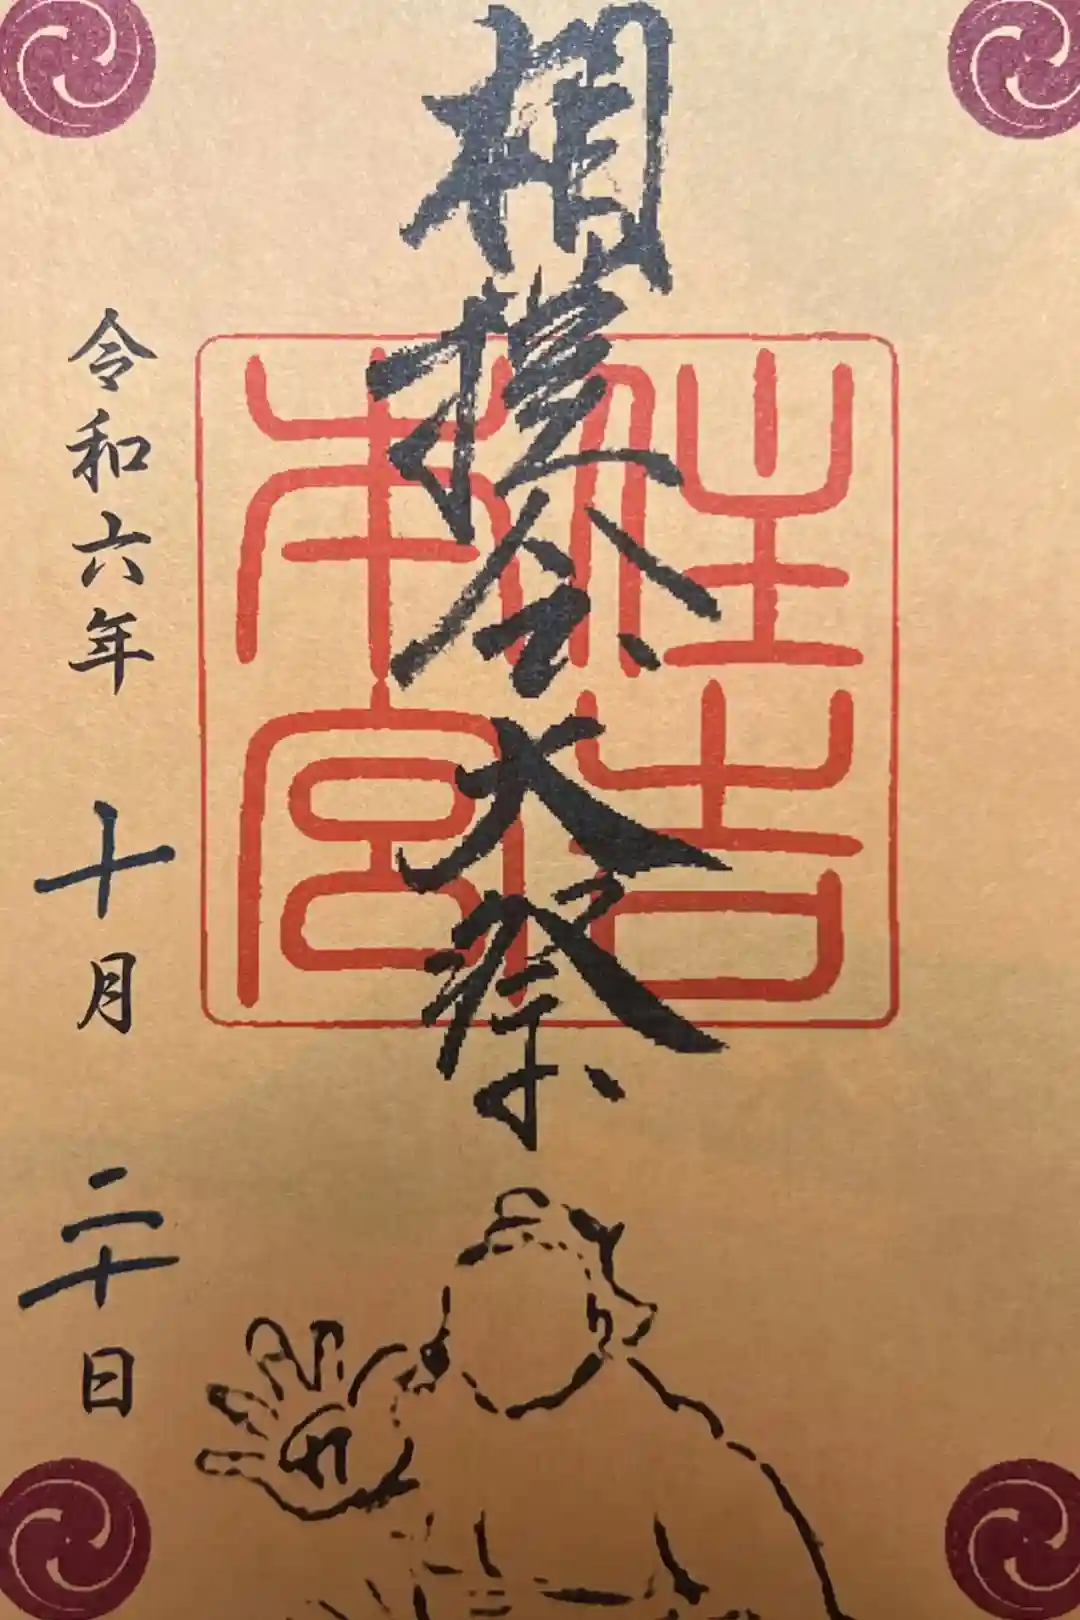 相撲会大祭
住吉
本宮
令和六年 十月 二十日